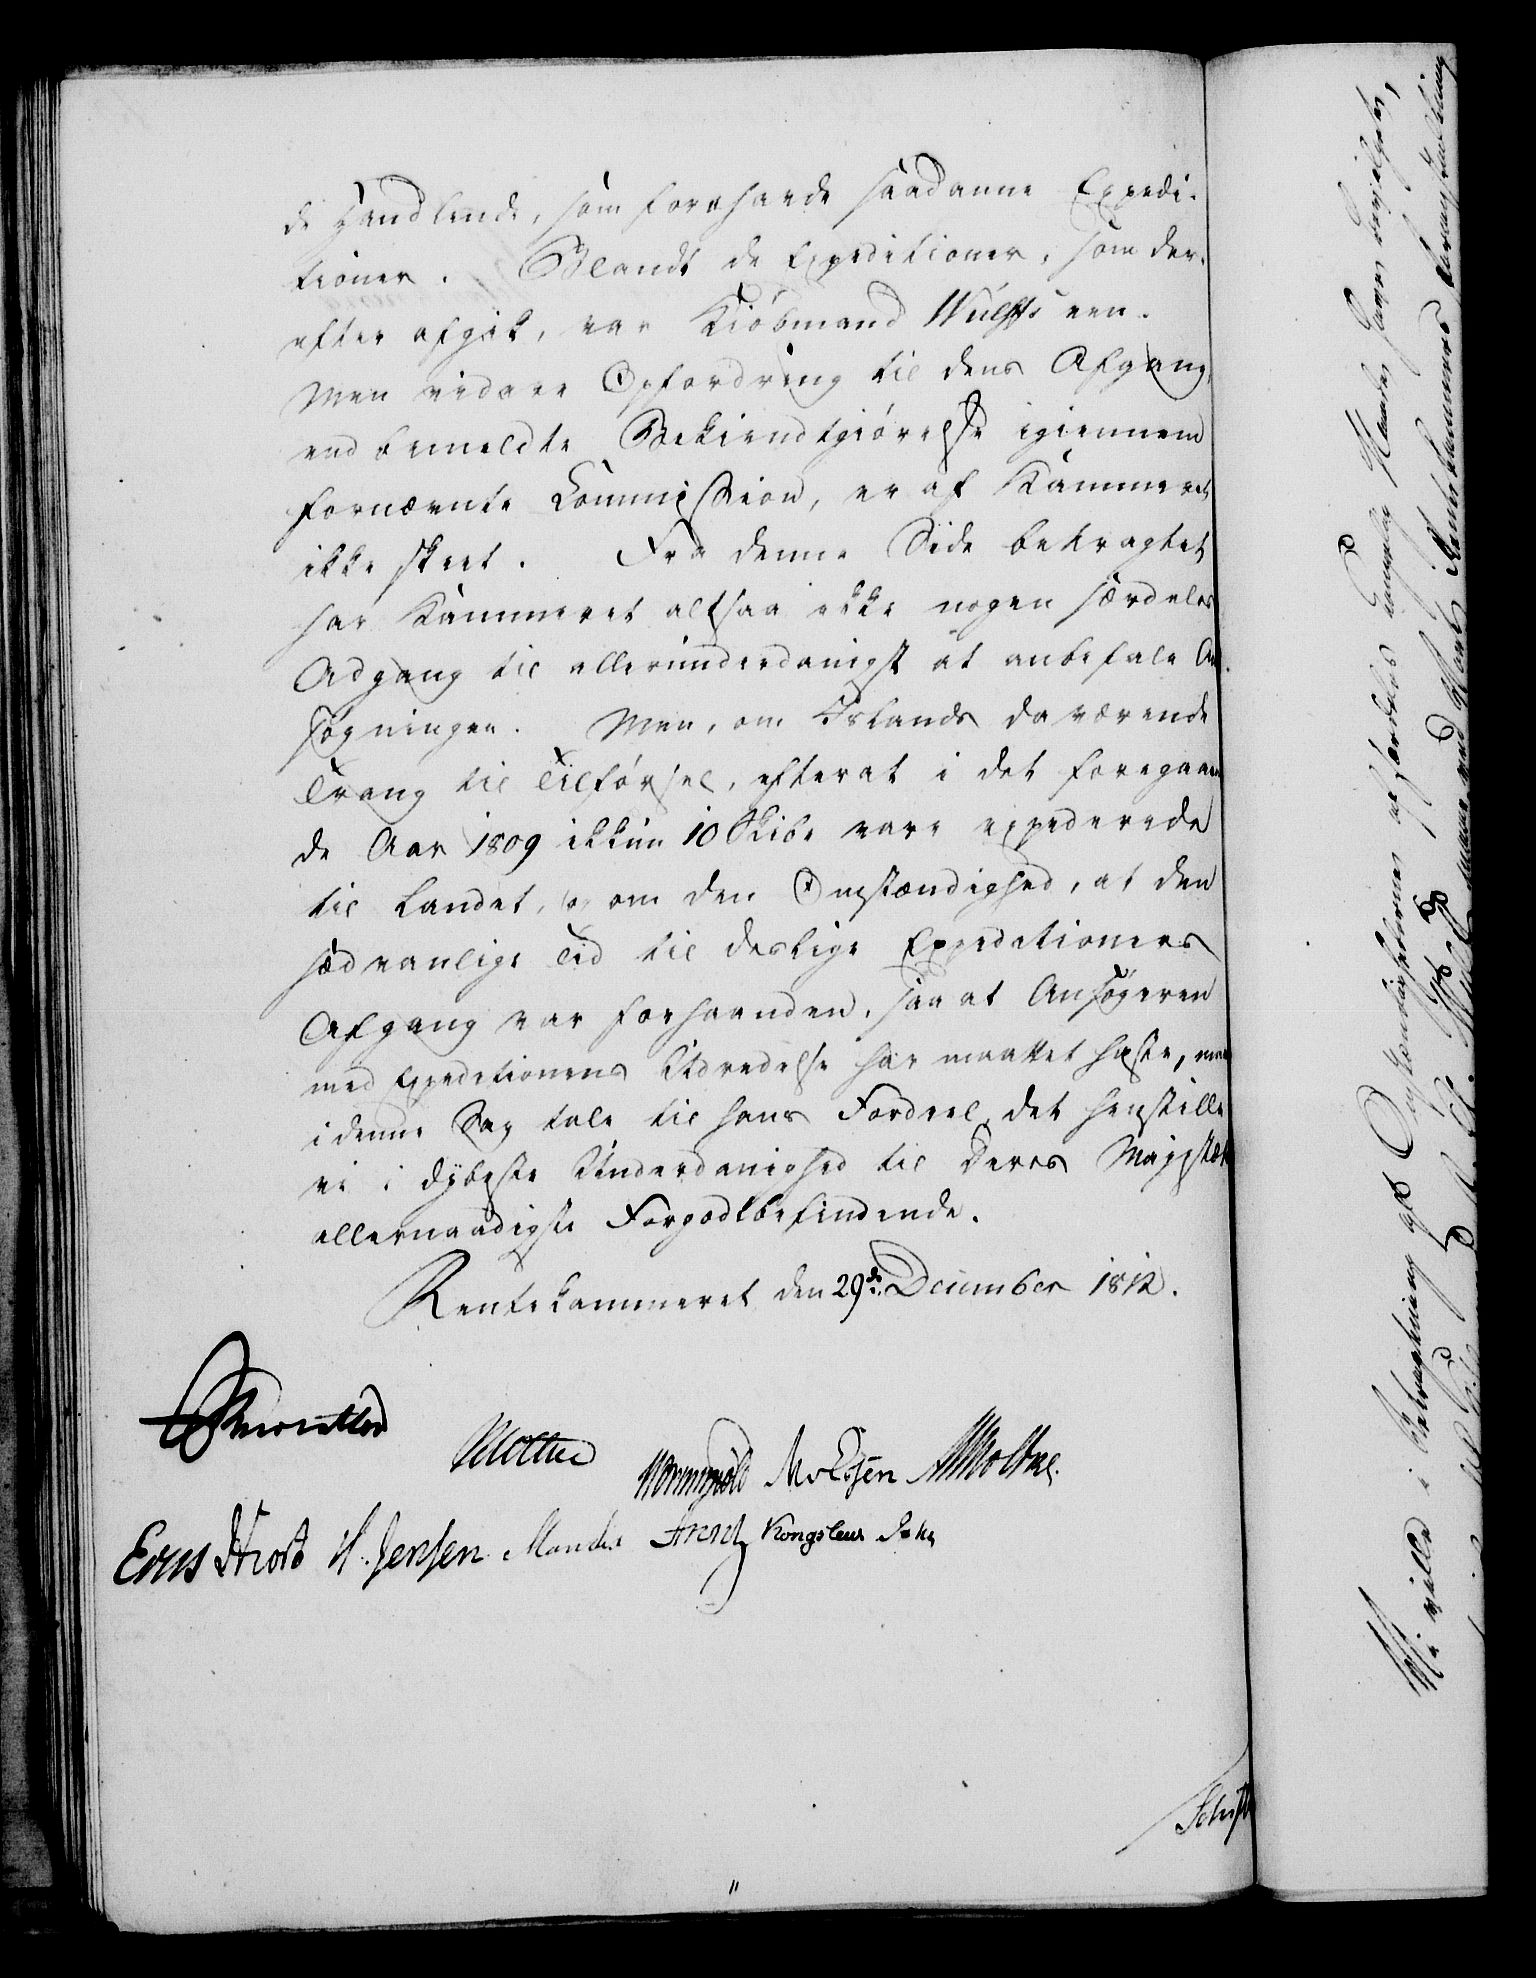 de Handlende, som forehavde saadanne Expedi-
tioner. Blandt de Expeditioner, som der-
efter afgik, var Kiöbmand Wulffs een.
Men videre Opfordring til dens Afgang,
end bemeldte Bekiendtgiörelse igiennem
fornævnte Commission, er af Kammeret
ikke skeet. Fra denne Side betragtet
har Kammeret altsaa ikke nogen særdeles
Adgang til allerunderdanigst at anbefale An-
søgningen. Men, om Islands daværende
Trang til Tilførsel, efterat i det foregaaen
de Aar 1809 ikkun 10 Skibe vare expederede
til Landet, og om den Omstændighed, at den
sædvanlige Tid til deslige Expeditioners
Afgang var forhaanden, saa at Ansøgeren
med Expeditionens Udredelse har maattet haste, maa
i denne Sag tale til hans Fordeel, det henstille
vi i dybeste Underdanighed til Deres Majestæts
allernaadigste Forgodtbefindende.
Rentekammeret den 29de December 1812.
Moltke
Wormskiold AMoltke.
Hiort H. Jensen. Kongslew
Schift
Vi ville i Betragtning af de Omstændigheder